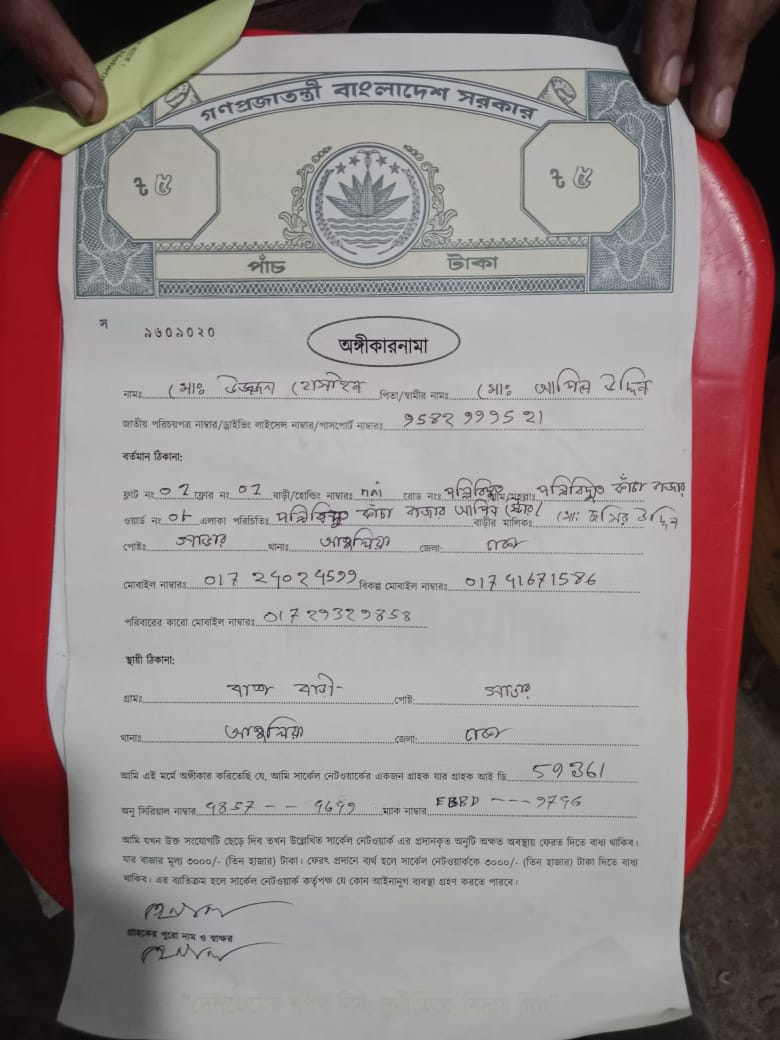 গণপ্রজাতন্ত্রী বাংলাদেশ সরকার
৳ ৫ ৳ ৫
পাঁচ টাকা
স ৯৬০৯০২০
অঙ্গীকারনামা
নামঃ মোঃ উজ্জল হোসাইন পিতা/স্বামীর নামঃ মোঃ আপিল উদ্দিন
জাতীয় পরিচয়পত্র নাম্বার/ড্রাইভিং লাইসেন্স নাম্বার/পাসপোর্ট নাম্বারঃ
বর্তমান ঠিকানা:
ফ্লাট নং ০২ ফ্লোর নং ০২ বাড়ী/হোল্ডিং নাম্বারঃ রোড নংঃ পল্লিবিদ্যুত গ্রাম/মহল্লাঃ পল্লিবিদ্যুত কাঁচা বাজার
ওয়ার্ড নং ০৮ এলাকা পরিচিতিঃ পল্লিবিদ্যুত কাঁচা বাজার বাড়ীর মালিকঃ মোঃ উদ্দিন
পোষ্টঃ সাভার থানাঃ আশুলিয়া জেলা: ঢাকা
মোবাইল নাম্বারঃ 017 24024599 বিকল্প মোবাইল নাম্বারঃ 01741671586
পরিবারের কারো মোবাইল নাম্বারঃ 01729329858
স্থায়ী ঠিকানা:
গ্রামঃ বাড়ী পোষ্ট: সাভার
থানাঃ আশুলিয়া জেলা: ঢাকা
আমি এই মর্মে অঙ্গীকার করিতেছি যে, আমি সার্কেল নেটওয়ার্কের একজন গ্রাহক যার গ্রাহক আই ডি 59361
অনু সিরিয়াল নাম্বার ম্যাক নাম্বার
আমি যখন উক্ত সংযোগটি ছেড়ে দিব তখন উল্লেখিত সার্কেল নেটওয়ার্ক এর প্রদানকৃত অনুটি অক্ষত অবস্থায় ফেরত দিতে বাধ্য থাকিব।
যার বাজার মূল্য ৩০০০/- (তিন হাজার) টাকা। ফেরৎ প্রদানে ব্যর্থ হলে সার্কেল নেটওয়ার্ককে ৩০০০/- (তিন হাজার) টাকা দিতে বাধ্য
থাকিব। এর ব্যতিক্রম হলে সার্কেল নেটওয়ার্ক কর্তৃপক্ষ যে কোন আইনানুগ ব্যবস্থা গ্রহণ করতে পারবে।
গ্রাহকের পুরো নাম ও স্বাক্ষর